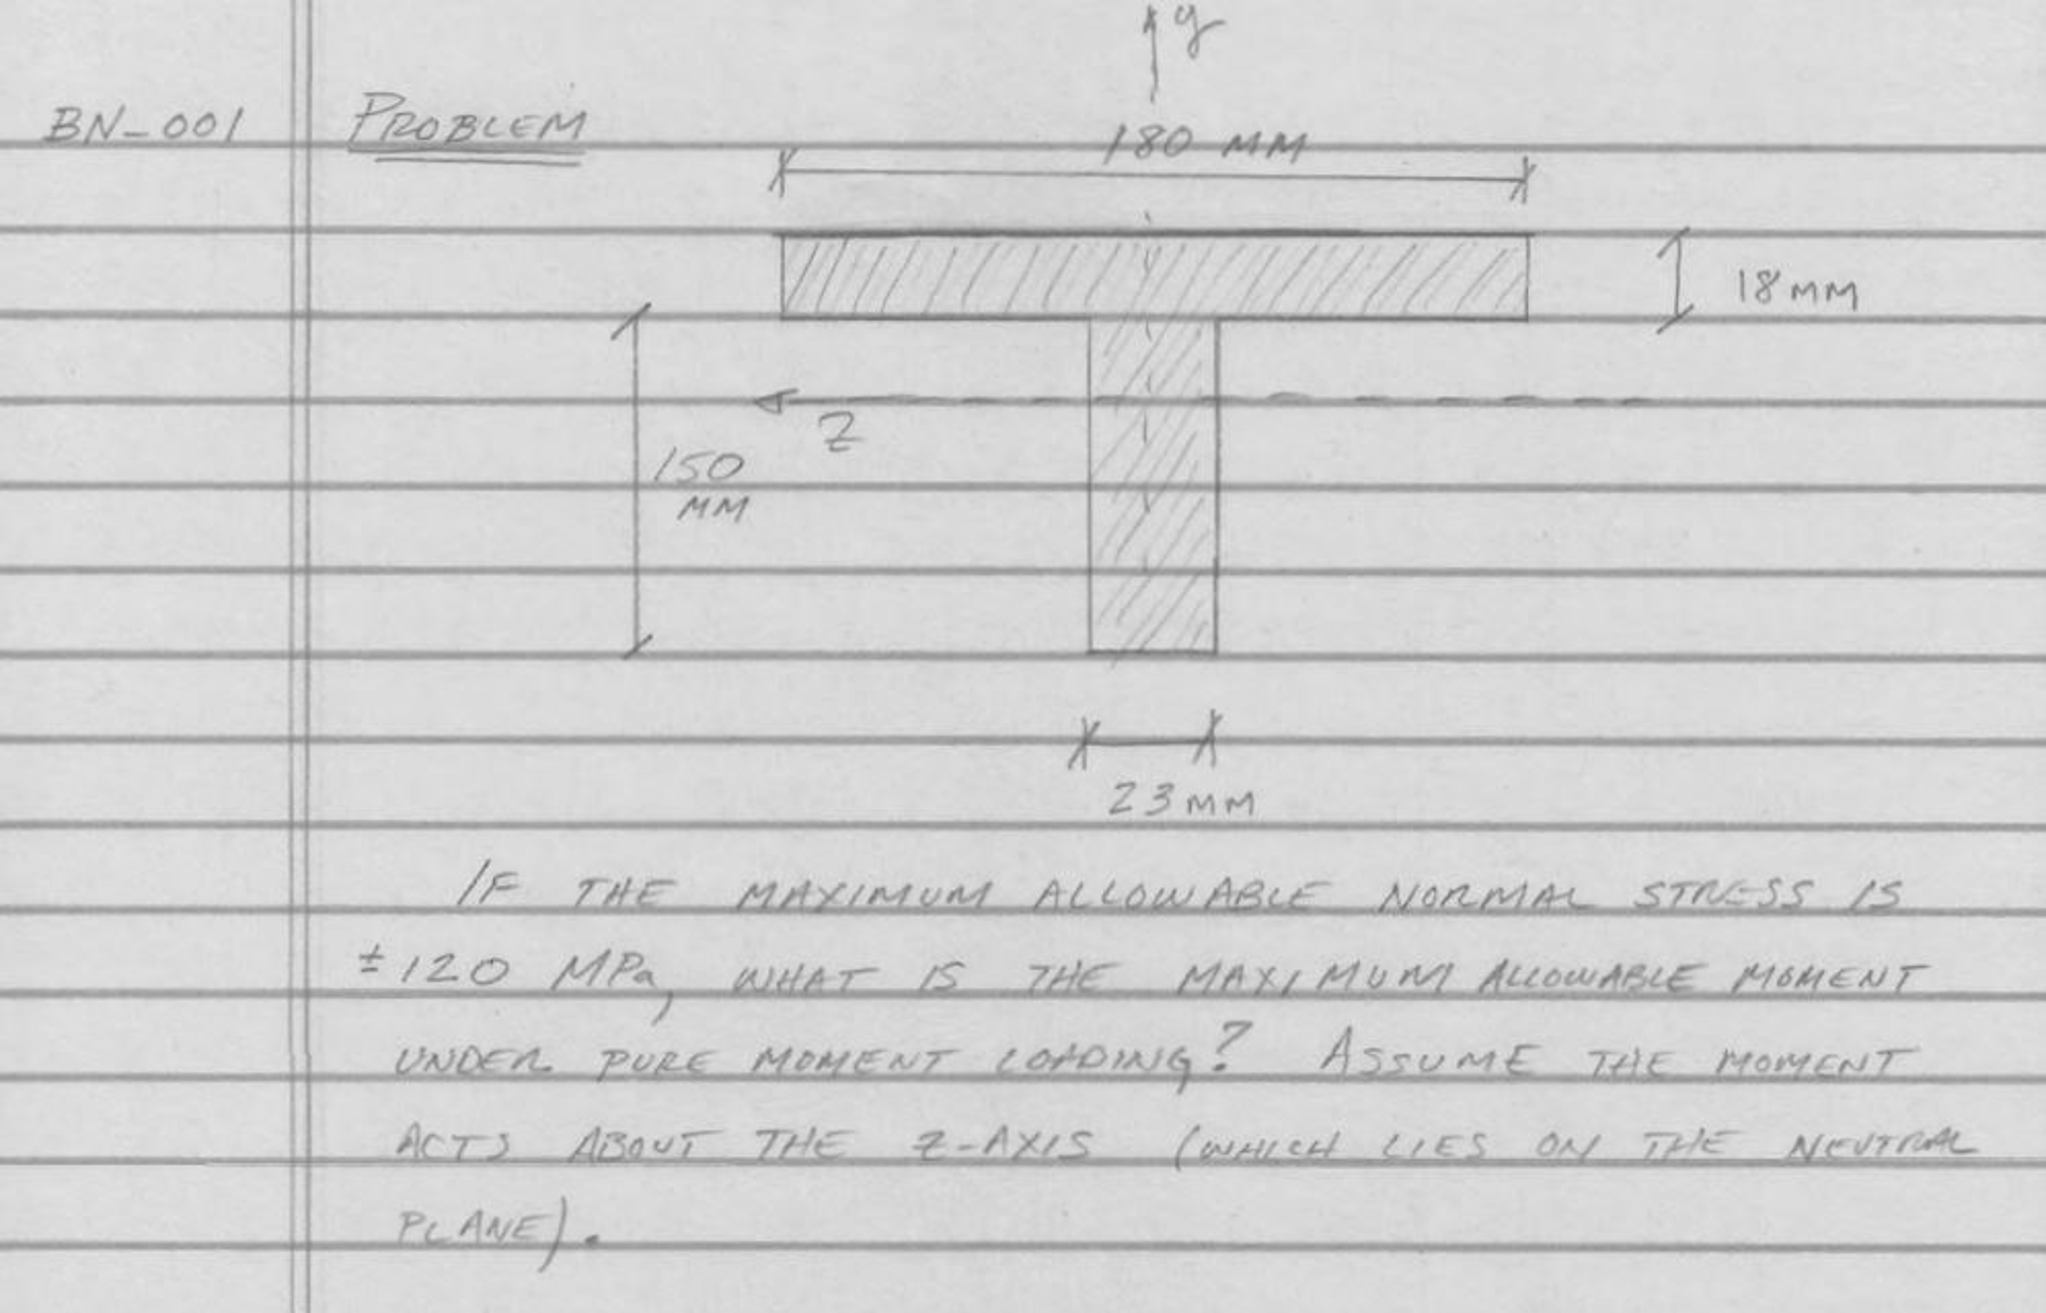 y
BN-001 PROBLEM
180 MM
18 MM
Z
150
MM
23 MM
IF THE MAXIMUM ALLOWABLE NORMAL STRESS IS
±120 MPa, WHAT IS THE MAXIMUM ALLOWABLE MOMENT
UNDER PURE MOMENT LOADING? ASSUME THE MOMENT
ACTS ABOUT THE Z-AXIS (WHICH LIES ON THE NEUTRAL
PLANE).